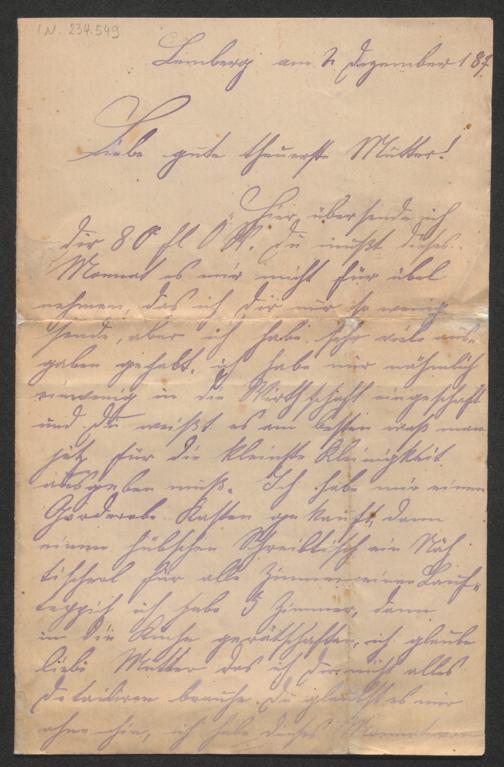 I.N. 234.549
Lemberg am 2 Dezember 187
Liebe gute theuerste Mutter!
Hier übersende ich
dir 80 fl Ö W. du mußt dieses
Monnat es mir nicht für übel
nehmen, das ich dir nur so wenig
sende, aber ich habe sehr viele aus-
gaben gehabt. ich habe mir nähmlich
einwenig in die Wirthschaft eingeschaft
und du weißt es am besten was man
jetz für die kleinste Kleinigkeit
ausgeben muß. Ich habe mir einen
Garderobe Kasten gekauft, dann
einen hübschen Schreibtisch ein Näh
tischerl für alle Zimmer einen Lauf-
teppich ich habe 3 Zimmer, dann
in die Küche gerätschaften, ich glaube
liebe Mutter das ich dir nicht alles
Detailiren brauche du glaubst es mir
ohne hin, ich habe dieses Monnat